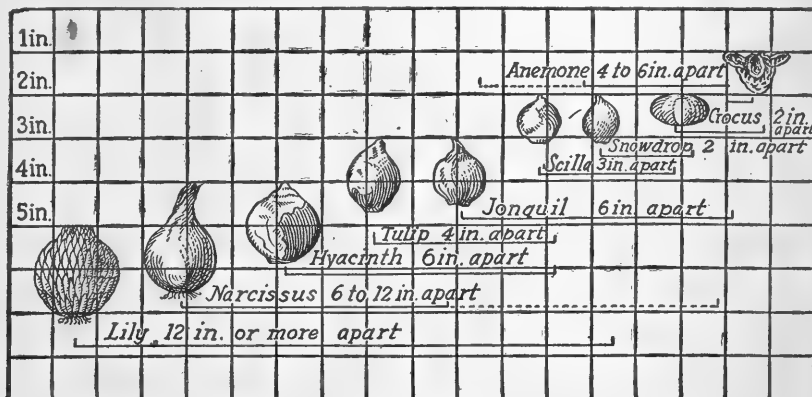 1in.
2in.
Anemone 4 to 6in. apart
3in.
Crocus 2in.
apart
Snowdrop 2 in. apart
4in.
Scilla 3in. apart
5in.
Jonquil 6in. apart
Tulip 4in. apart
Hyacinth 6in. apart
Narcissus 6 to 12in. apart
Lily 12 in. or more apart